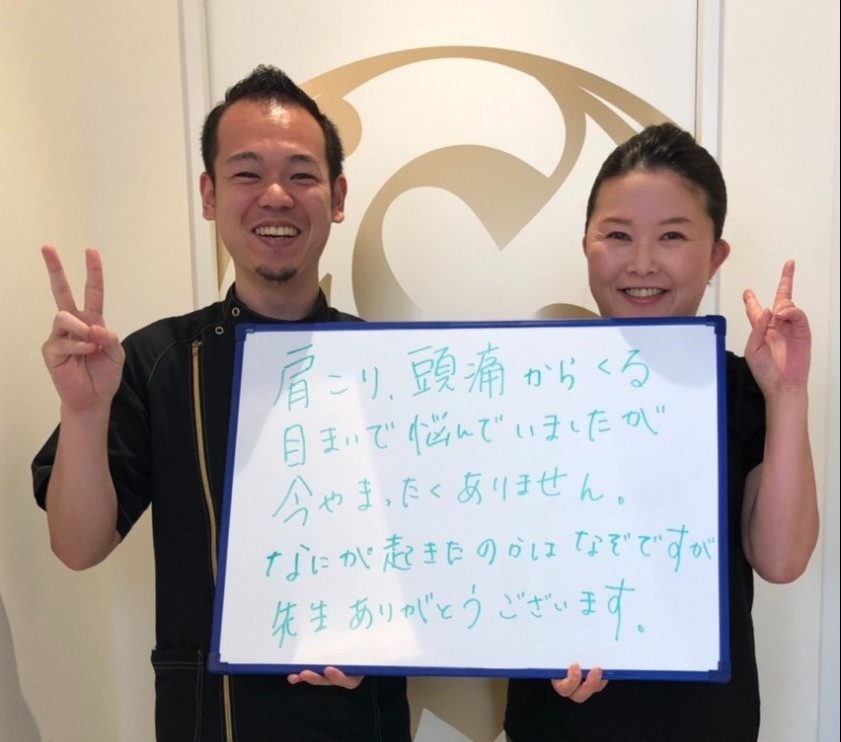 肩こり、頭痛からくる
目まいで悩んでいましたが
今やまったくありません。
なにが起きたのかはなぞですが
先生ありがとうございます。